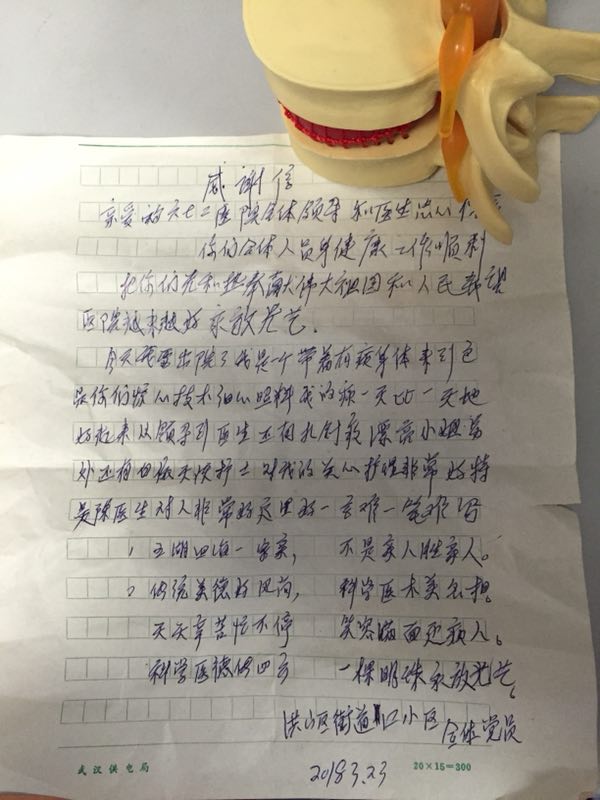 感谢信
亲爱的六七二医院全体领导和医生忠心
你们全体人员身体健康工作顺利
把你们光和热奉献伟大祖国和人民希望
医院越来越好永放光芒.
今天我要出院了我是一个带着有病身体来到这
是你们精心技术细心照料我的病一天比一天地
好起来从领导到医生还有扎针灸漂亮小姐
处还有白衣天使护士对我的关心护理非常好特
是陈医生对人非常好这里的一言难一笔难写
1 五湖四海一家亲, 不是亲人胜亲人。
2 传统美德好风尚, 科学医术美名扬。
天天辛苦忙不停 笑容满面迎病人。
科学医德传四方 一棵明珠永放光芒。
洪山区街道口小区 全体党员
2018 3.23
武汉供电局 20×15=300